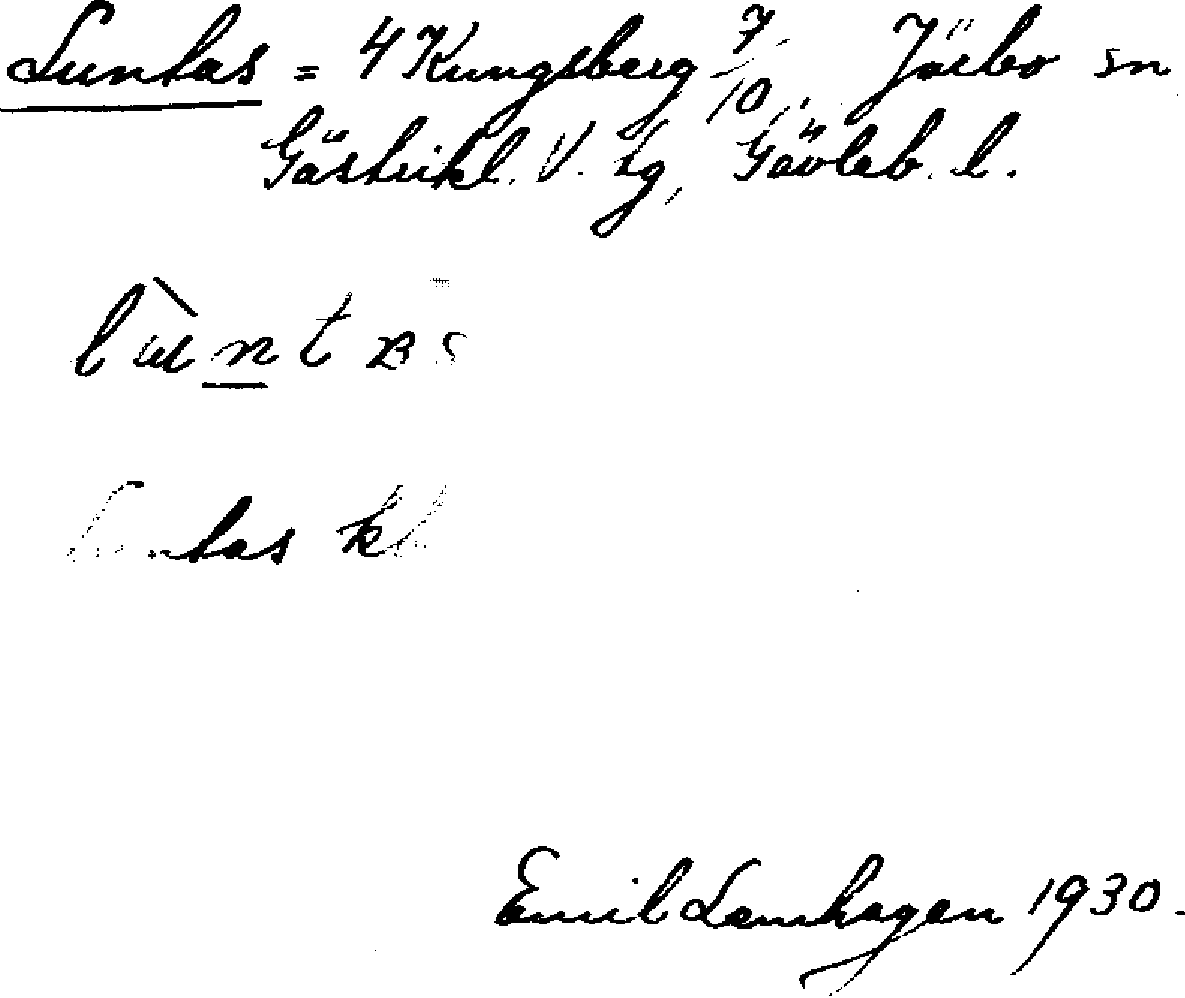 Luntas = 4 Kungsberg 7/10, Järbo sn
Gästrikl. V. tg, Gävleb. l.
lùntas
Luntas
Emil Lamhagen 1930.